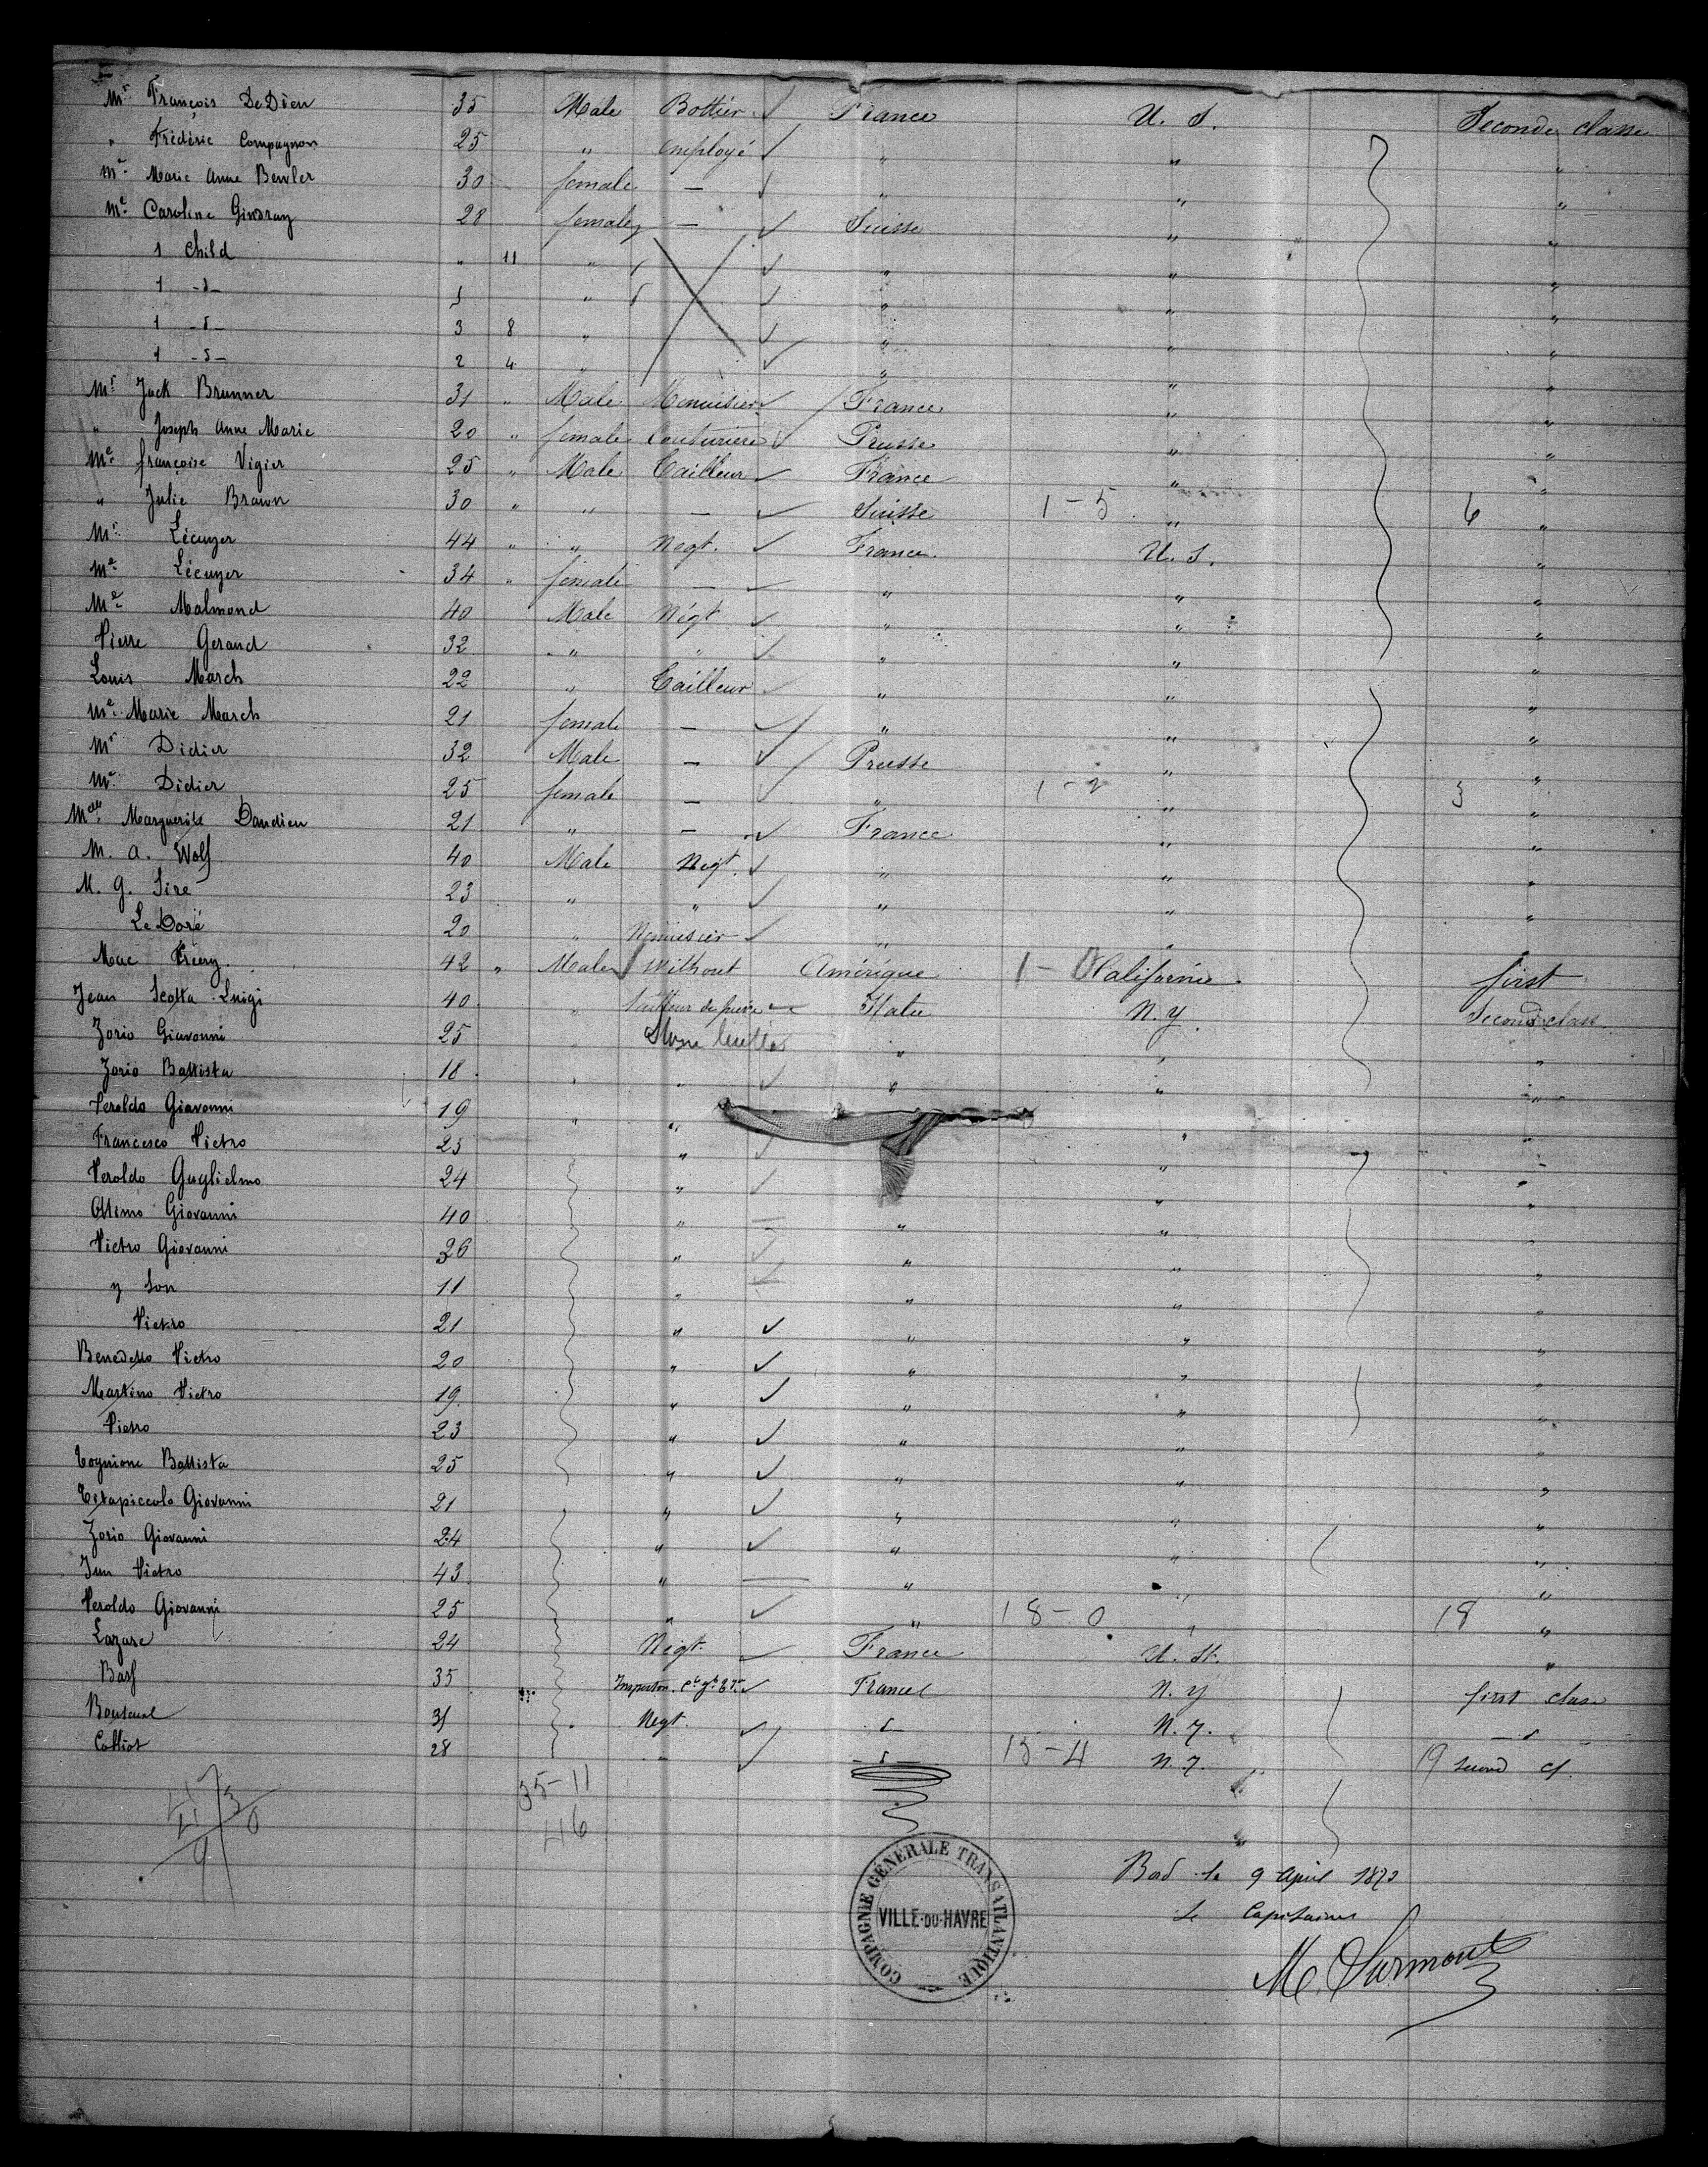 Mr François DeDieu 35 Male Bottier France U. S. Seconde classe
" Frédéric Compagnon 25 " employé " " "
Me Marie Anne Bewler 30 female — " " "
Me Caroline Gindray 28 female — Suisse " "
1 Child " 11 " " " "
1 -d- 1 " " " "
1 -d- 3 8 " " " "
1 -d- 2 4 " " " "
Mr Jack Brunner 31 " Male Menuisier France " "
" Joseph Anne Marie 20 " female Couturière Prusse " "
Me françoise Vigier 25 " Male Tailleur France " "
" Julie Brawn 30 " " — Suisse 1-5 " 6 "
Mr Lécuyer 44 " " Negt. France U. S. "
Me Lécuyer 34 " female — " " "
Me Malmond 40 Male Négt " " "
Pierre Gerand 32 " " " " "
Louis March 22 " Tailleur " " "
Me Marie March 21 female — " " "
Mr Didier 32 Male — Prusse " "
Me Didier 25 female — " 1-2 " 3 "
Marguerite Daudieu 21 " — France " "
M. A. Wolf 40 Male Negt. " " "
M. G. Sire 23 " " " " "
Le Doré 20 " Menuisier " " "
Mac 42 " Male Without Amérique 1-0 Californie first
Jean Scotta Luigi 40 " Tailleur de pierre Italie N. Y. Second class
Zorio Giavonni 25 " Stone Cutter " " "
Zorio Battista 18 " " " " "
Peroldo Giavonni 19 " " " "
Francesco Pietro 25 " " "
Peroldo Guglielmo 24 " " "
Ottimo Giovanni 40 " " " "
Pietro Giovanni 36 " " " "
y Son 11 " " " "
Pietro 21 " " " "
Benedetto Pietro 20 " " " "
Martino Pietro 19 " " " "
Pietro 23 " " " "
Tognione Battista 25 " " " "
Tetapiccolo Giovanni 21 " " " "
Zorio Giovanni 24 " " " "
Jun Pietro 43 " " " "
Peroldo Giovanni 25 " " 18-0 " 18 "
Lazare 24 Negt. France U. St. "
Basf 35 France N. Y first class
31 Negt. -d- N. Y. -d-
Colliot 28 " -d- 15-4 N. Y. 19 second cl.
35-11
46
Bord le 9 April 1872
Le Capitaine
M. Surmont
COMPAGNIE GÉNÉRALE TRANSATLANTIQUE
VILLE-DU-HAVRE